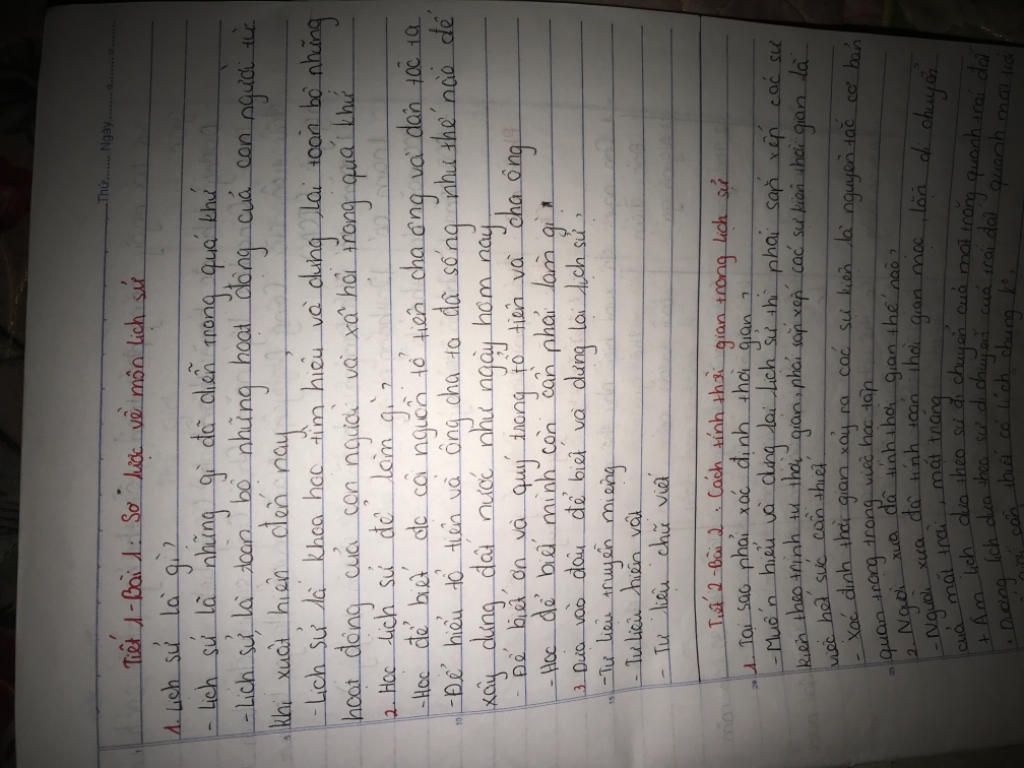 Thứ....... Ngày.......
Tiết 1 - Bài 1: Sơ lược về môn lịch sử
1. Lịch sử là gì?
- Lịch sử là những gì đã diễn trong quá khứ
- Lịch sử là toàn bộ những hoạt động của con người từ
khi xuất hiện đến nay
- Lịch sử là khoa học tìm hiểu và dựng lại toàn bộ những
hoạt động của con người và xã hội trong quá khứ
2. Học lịch sử để làm gì?
- Học để biết đc cội nguồn tổ tiên cha ông và dân tộc ta
- Để hiểu tổ tiên và ông cha ta đã sống như thế nào để
xây dựng đất nước như ngày hôm nay
- Để biết ơn và quý trọng tổ tiên và cha ông
- Học để biết mình còn cần phải làm gì
3. Dựa vào đâu để biết và dựng lại lịch sử?
- Tư liệu truyền miệng
- Tư liệu hiện vật
- Tư liệu chữ viết
Tiết 2 - Bài 2: Cách tính thời gian trong lịch sử
1. Tại sao phải xác định thời gian?
- Muốn hiểu và dựng lại lịch sử thì phải sắp xếp các sự
kiện theo trình tự thời gian, phải sắp xếp các sự kiện thời gian là
việc hết sức cần thiết
- Xác định thời gian xảy ra các sự kiện là nguyên tắc cơ bản
quan trọng trong việc học tập
2. Người xưa đã tính thời gian thế nào?
- Người xưa đã tính toán thời gian mọc lặn di chuyển
của mặt trời, mặt trăng
+ Âm lịch dựa theo sự di chuyển của mặt trăng quanh trái đất
Dương lịch dựa theo sự di chuyển của trái đất quanh mặt trời
giới cần thiết có lịch chung ko